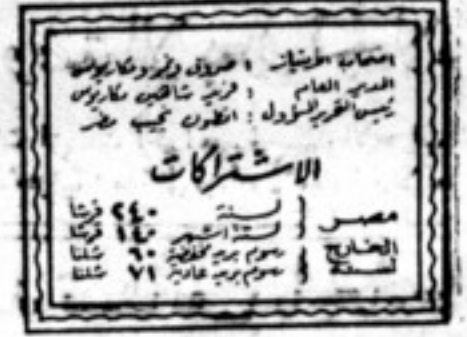 اصحاب الامتياز : صروف ونمر ومكاريوس
المدير العام : فريد شاهين مكاريوس
رئيس التحرير المسؤول : انطون نجيب مطر
الاشتراكات
مصر { لسنة ٢٤٠ قرشا
لستة اشهر ١٤٥ قرشا
الخارج لسنة { رسوم بريد مخفضة ٦٠ شلنا
رسوم بريد عادية ٧١ شلنا